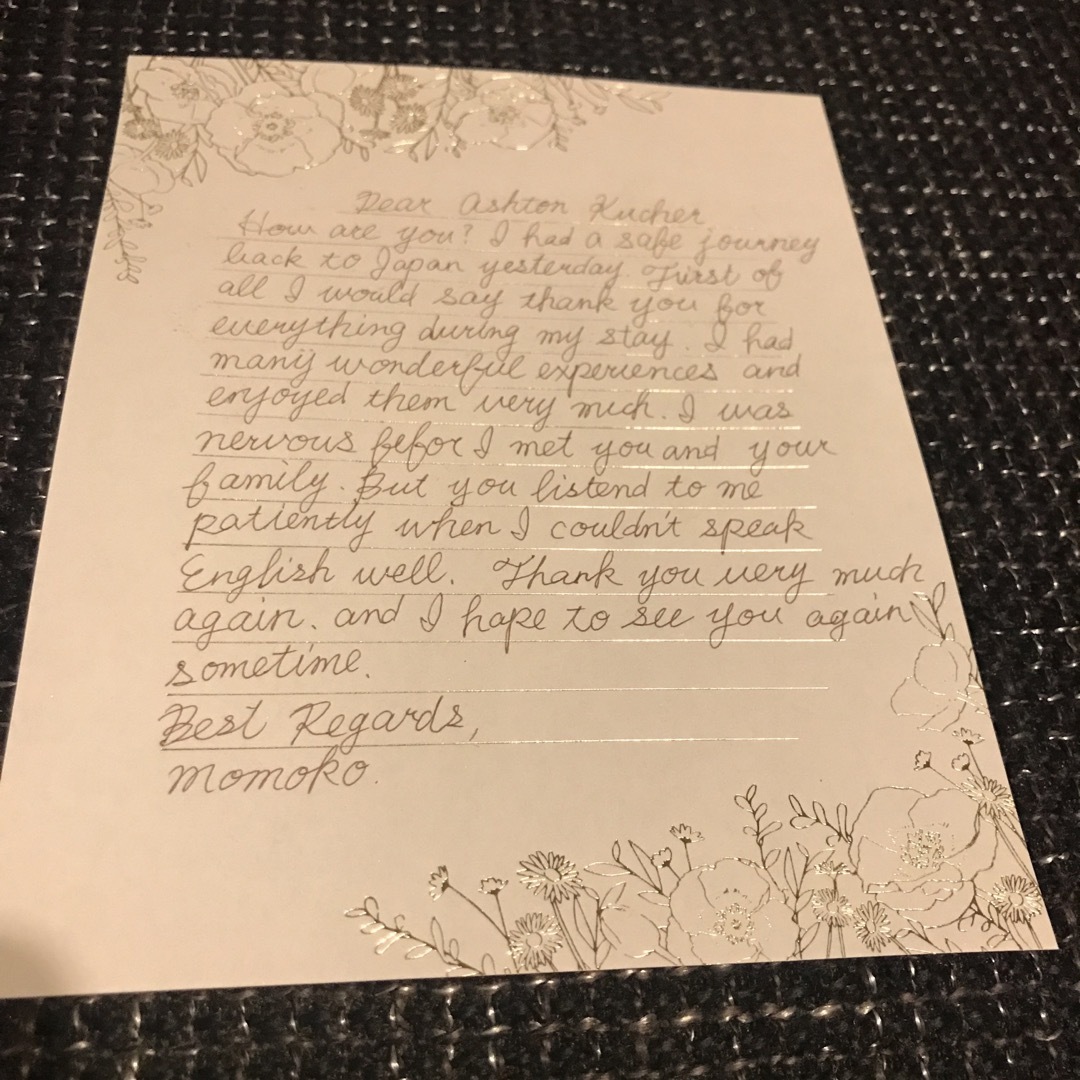 Dear Ashton Kucher
How are you? I had a safe journey
back to Japan yesterday. First of
all I would say thank you for
everything during my stay. I had
many wonderful experiences and
enjoyed them very much. I was
nervous befor I met you and your
family. But you listend to me
patiently when I couldn't speak
English well. Thank you very much
again. and I hope to see you again
sometime.
Best Regards,
Momoko.